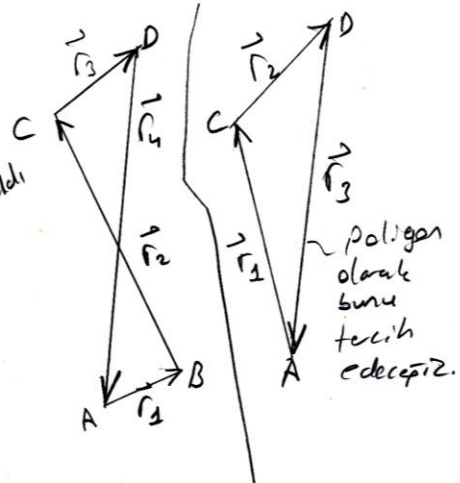 D
r⃗3
C
r⃗4
r⃗2
A
r⃗1
B
D
r⃗2
C
r⃗3
r⃗1
A
~ poligon
olarak
bunu
tercih
edeceğiz.